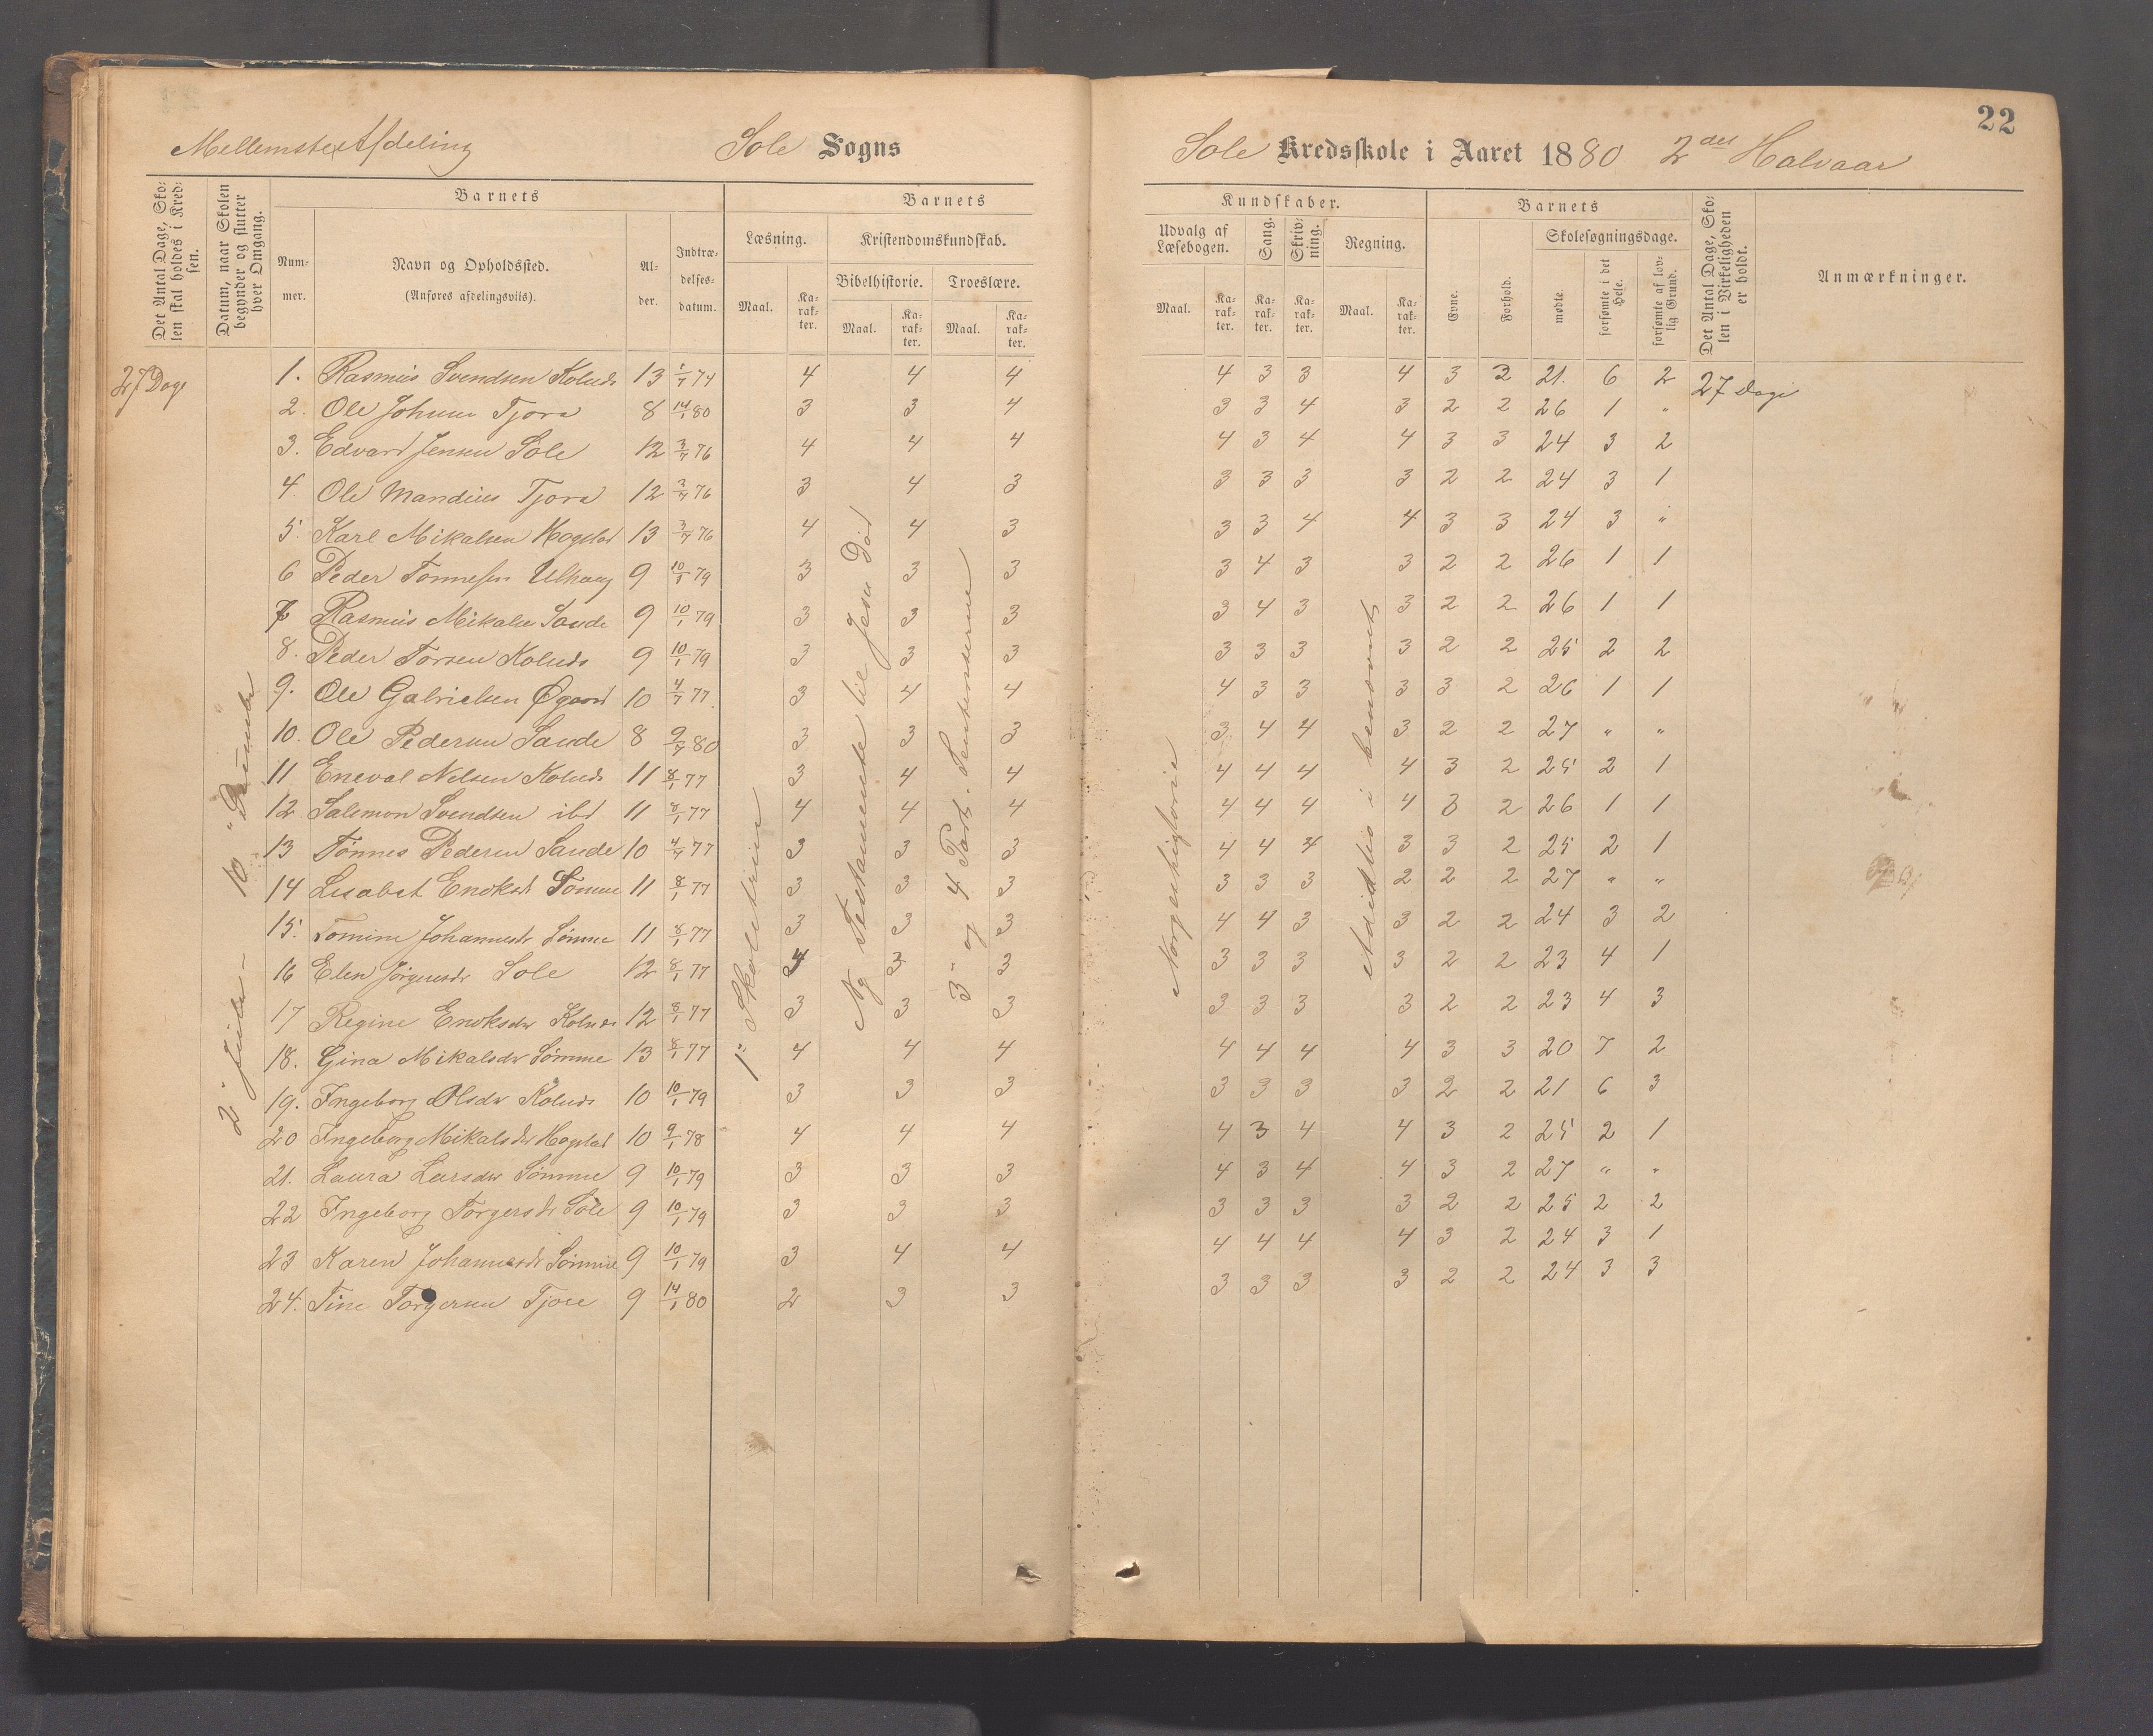 22
Mellemste Afdeling Sole Sogns Sole Kredsskole i Aaret 1880 2det Halvaar
Det Antal Dage, Skolen skal holdes i Kredsen.
Datum, naar Skolen begynder og slutter hver Omgang.
Barnets
Nummer.
Navn og Opholdssted.
(Anføres afdelingsviis).
Alder.
Indtrædelsesdatum.
Barnets Kundskaber.
Læsning.
Maal. Karakter.
Kristendomskundskab.
Bibelhistorie. Troeslære.
Maal. Karakter. Maal. Karakter.
Udvalg af Læsebogen.
Maal. Karakter.
Sang. Karakter.
Skrivning. Karakter.
Regning.
Maal. Karakter.
Barnets
Evne. Forhold.
Skolesøgningsdage.
mødte. forsømte i det Hele. forsømte af lovlig Grund.
Det Antal Dage, Skolen i Virkeligheden er holdt.
Anmærkninger.
27 Dage
27 Dage
1. Rasmus Svendsen Kolnds 13 1/7 74 4 4 4 4 3 3 4 3 2 21. 6 2
2. Ole Johnsen Tjora 8 14/1 80 3 3 4 3 3 4 3 2 2 26 1 "
3. Edvard Jensen Sole 12 3/7 76 4 4 4 4 3 4 4 3 3 24 3 2
4. Ole Mandius Tjora 12 3/7 76 3 4 3 3 3 3 3 2 2 24 3 1
5. Karl Mikalsen Hogstad 13 3/7 76 4 4 3 3 3 4 4 3 3 24 3 "
6 Peder Tønnesen 9 10/1 79 3 3 3 3 4 3 3 2 2 26 1 1
7 Rasmus Mikalsen Sande 9 10/1 79 3 3 3 3 4 3 3 2 2 26 1 1
8. Peder Torsen Kolnds 9 10/1 79 3 3 3 3 3 3 3 2 2 25 2 2
9. Ole Gabrielsen Øgaard 10 4/7 77. 3 4 4 4 3 3 3 3 2 26 1 1
10. Ole Pedersen Sande 8 9/7 80 3 3 3 3 4 4 3 2 2 27 " "
11 Eneval Nelsen Kolnds 11 8/1 77 3 4 4 4 4 4 4 3 2 25 2 1
12 Salemon Svendsen ibd 11 8/1 77 4 4 4 4 4 4 4 3 2 26 1 1
13 Tønnes Pedersen Sande 10 4/7 77 3 3 3 4 4 4 3 3 2 25 2 1
14 Lisabet Enoksdr Sømme 11 8/1 77 3 3 3 3 3 3 2 2 2 27 " "
15. Tomine Johannesdr Sømme 11 8/1 77 3 3 3 4 4 3 3 2 2 24 3 2
16 Elen Jørgensdr Sole 12 8/1 77 4 3 3 3 3 3 3 2 2 23 4 1
17 Regine Enoksdr Kolnds 12 8/1 77 3 3 3 3 3 3 3 2 2 23 4 3
18. Gina Mikalsdr Sømme 13 8/1 77 4 4 4 4 4 4 4 3 3 20 7 2
19. Ingeborg Olsdr Kolnds 10 10/1 79 3 3 3 3 3 3 3 2 2 21 6 3
20 Ingeborg Mikalsdr Hogstad 10 9/1 78 4 4 4 4 3 4 4 3 2 25 2 1
21. Laura Larsdr Sømme 9 10/1 79 3 3 3 4 3 4 4 3 2 27 " "
22 Ingeborg Torgersdr Sole 9 10/1 79 3 3 3 3 3 3 3 2 2 25 2 2
23 Karen Johannesdr Sømme 9 10/1 79 3 4 4 4 4 4 4 3 2 24 3 1
24. Tine Torgersen Tjore 9 14/1 80 2 3 3 3 3 3 3 2 2 24 3 3
1ste Skoletrin
Ny Testamente til Jesu Død
3" og 4 Part. Sententserne
Norgeshistorie
Addition i benævnte